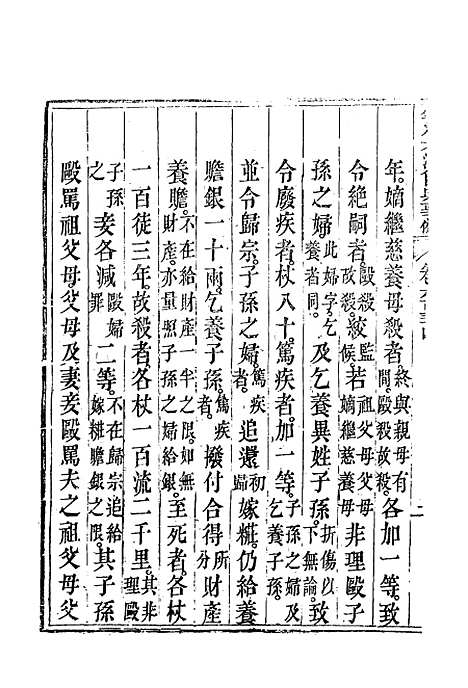 年。嫡繼慈養母殺者終與親母有間。毆殺故殺。各加一等。致
令絶嗣者。毆殺故殺。絞監候若祖父母父母嫡繼慈養母非理毆子
孫之婦此婦字乞養者同。及乞養異姓子孫。折傷以下無論。致
令廢疾者。杖八十。篤疾者。加一等。子孫之婦及乞養子孫。
並令歸宗。子孫之婦篤疾者。追還初歸嫁粧。仍給養
贍銀一十兩。乞養子孫。篤疾者。撥付合得所分財產
養贍。不在給財產一半之限。如無財產。亦量照子孫之婦給銀。至死者。各杖
一百徒三年。故殺者。各杖一百流二千里。其非理毆
子孫之妾各減毆婦罪二等。不在歸宗追給嫁粧贍銀之限。其子孫
毆罵祖父母父母及妻妾毆罵夫之祖父母父